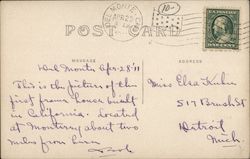 DEL MONTE, CAL.
APR 28
POST CARD
MESSAGE
ADDRESS
Del Monte Apr. 28 '11
This is the picture of the
first frame house built
in California. Located
at Monterey about two
miles from here
Miss Elsa Kuhn
517 Brush St
Detroit
Mich